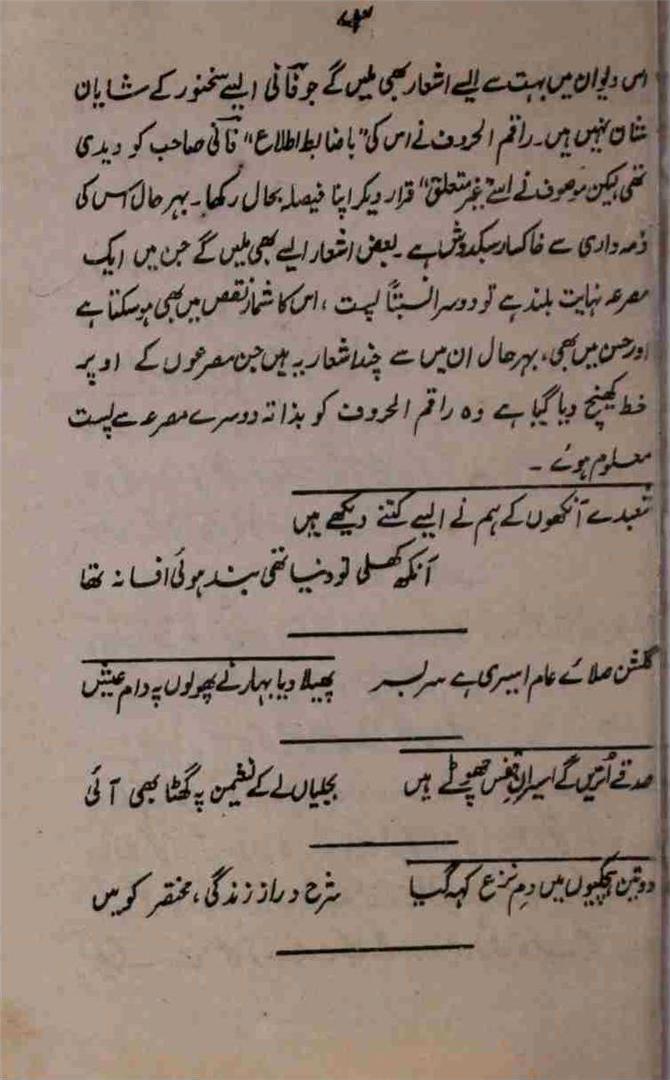 ۷۳
اس دیوان میں بہت سے ایسے اشعار بھی ملیں گے جو فانی ایسے سخنور کے شایان
شان نہیں ہیں۔ راقم الحروف نے اس کی "باضابطہ اطلاع" فانی صاحب کو دیدی
تھی لیکن موصوف نے اسے "غیر متعلق" قرار دیکر اپنا فیصلہ بحال رکھا۔ بہرحال اس کی
ذمہ داری سے خاکسار سبکدوش ہے۔ بعض اشعار ایسے بھی ملیں گے جن میں ایک
مصرعہ نہایت بلند ہے تو دوسرا نسبتاً پست، اس کا شمار نقص میں بھی ہوسکتا ہے
اور حسن میں بھی، بہرحال ان میں سے چند اشعار یہ ہیں جن مصرعوں کے اوپر
خط کھینچ دیا گیا ہے وہ راقم الحروف کو بذاتہ دوسرے مصرعہ سے پست
معلوم ہوئے۔
شعبدے آنکھوں کے ہم نے ایسے کتنے دیکھے ہیں
آنکھ کھلی تو دنیا تھی بند ہوئی افسانہ تھا
گلشن صلائے عام اسیری ہے سر بسر پھیلا دیا بہار نے پھولوں پہ دام عیش
صدقے اُتریں گے اسیرانِ قفس چھوٹے ہیں بجلیاں لے کے نشیمن پہ گھٹا بھی آئی
دو تین ہچکیوں میں دمِ نزع کہہ گیا شرح دراز زندگی، مختصر کو میں